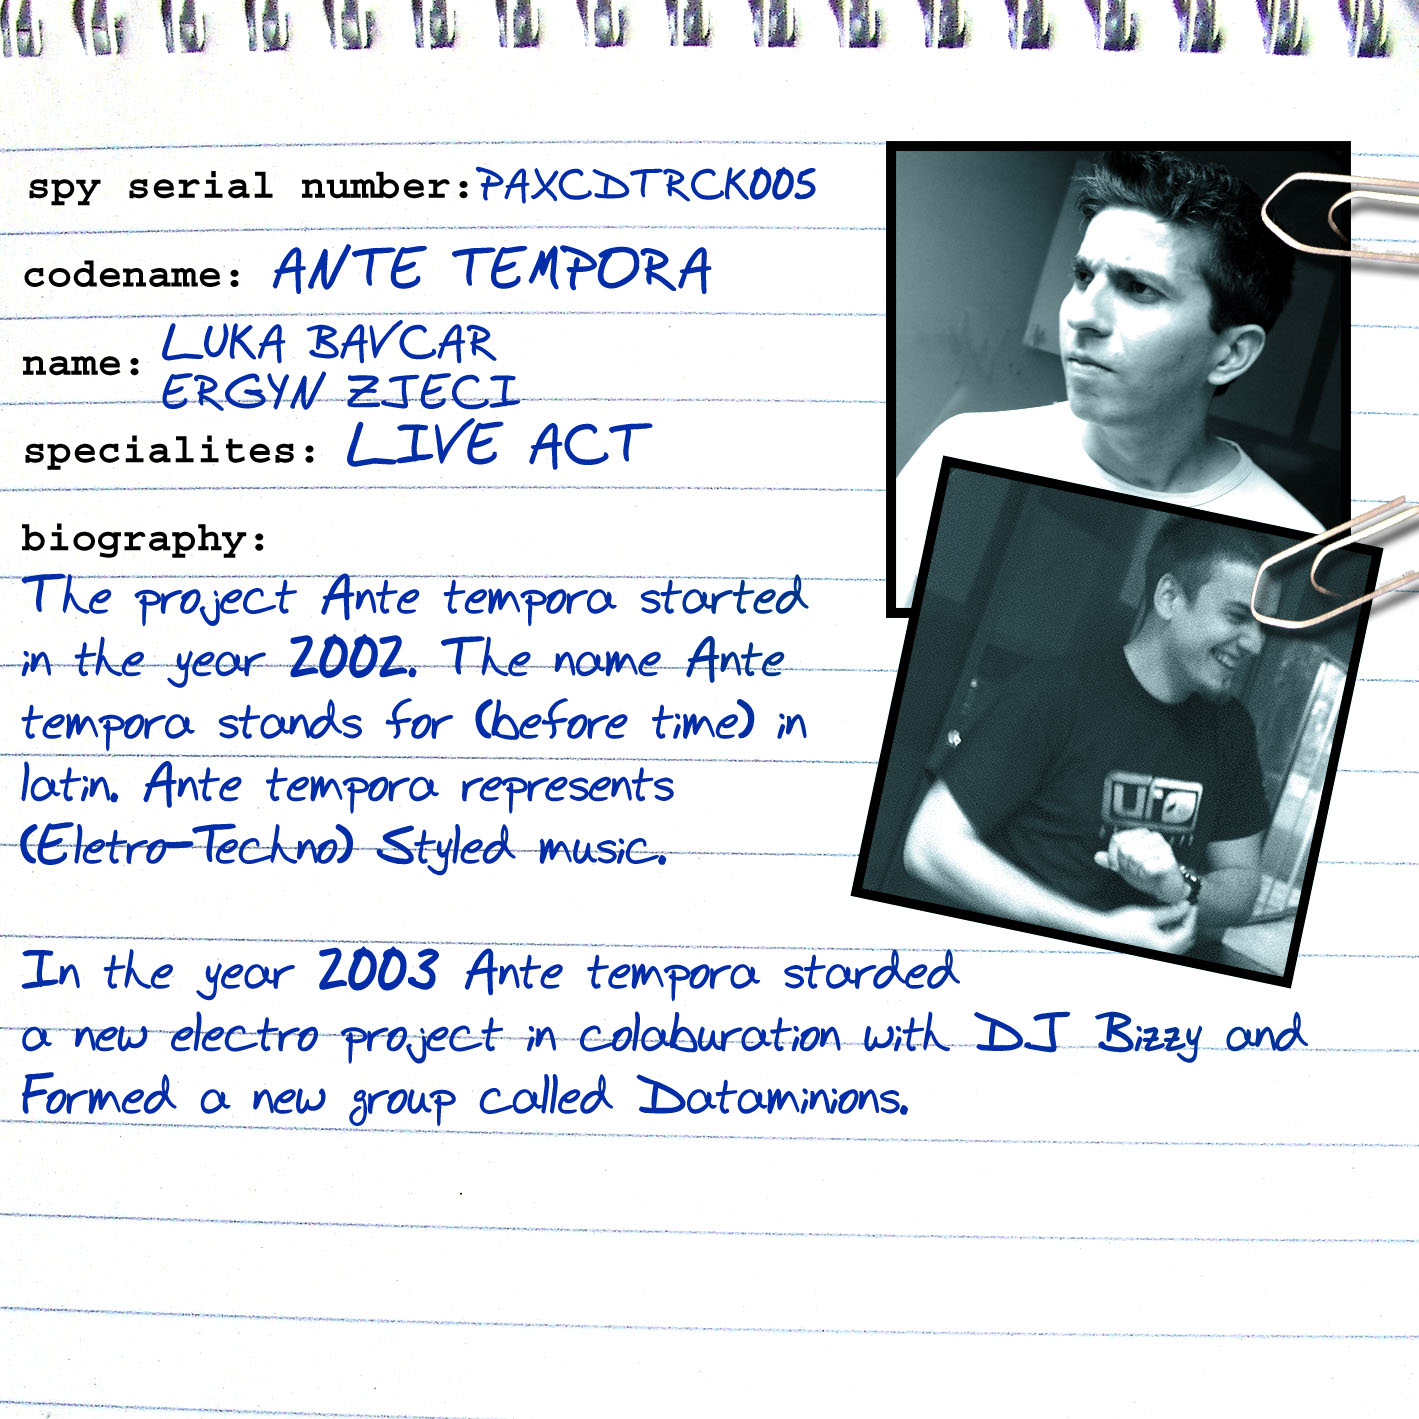 spy serial number: PAXCDTRCK005
codename: ANTE TEMPORA
name: LUKA BAVCAR
ERGYN ZJECI
specialites: LIVE ACT
biography:
The project Ante tempora started
in the year 2002. The name Ante
tempora stands for (before time) in
latin. Ante tempora represents
(Eletro-Techno) Styled music.
UFO
In the year 2003 Ante tempora starded
a new electro project in colaburation with DJ Bizzy and
Formed a new group called Dataminions.